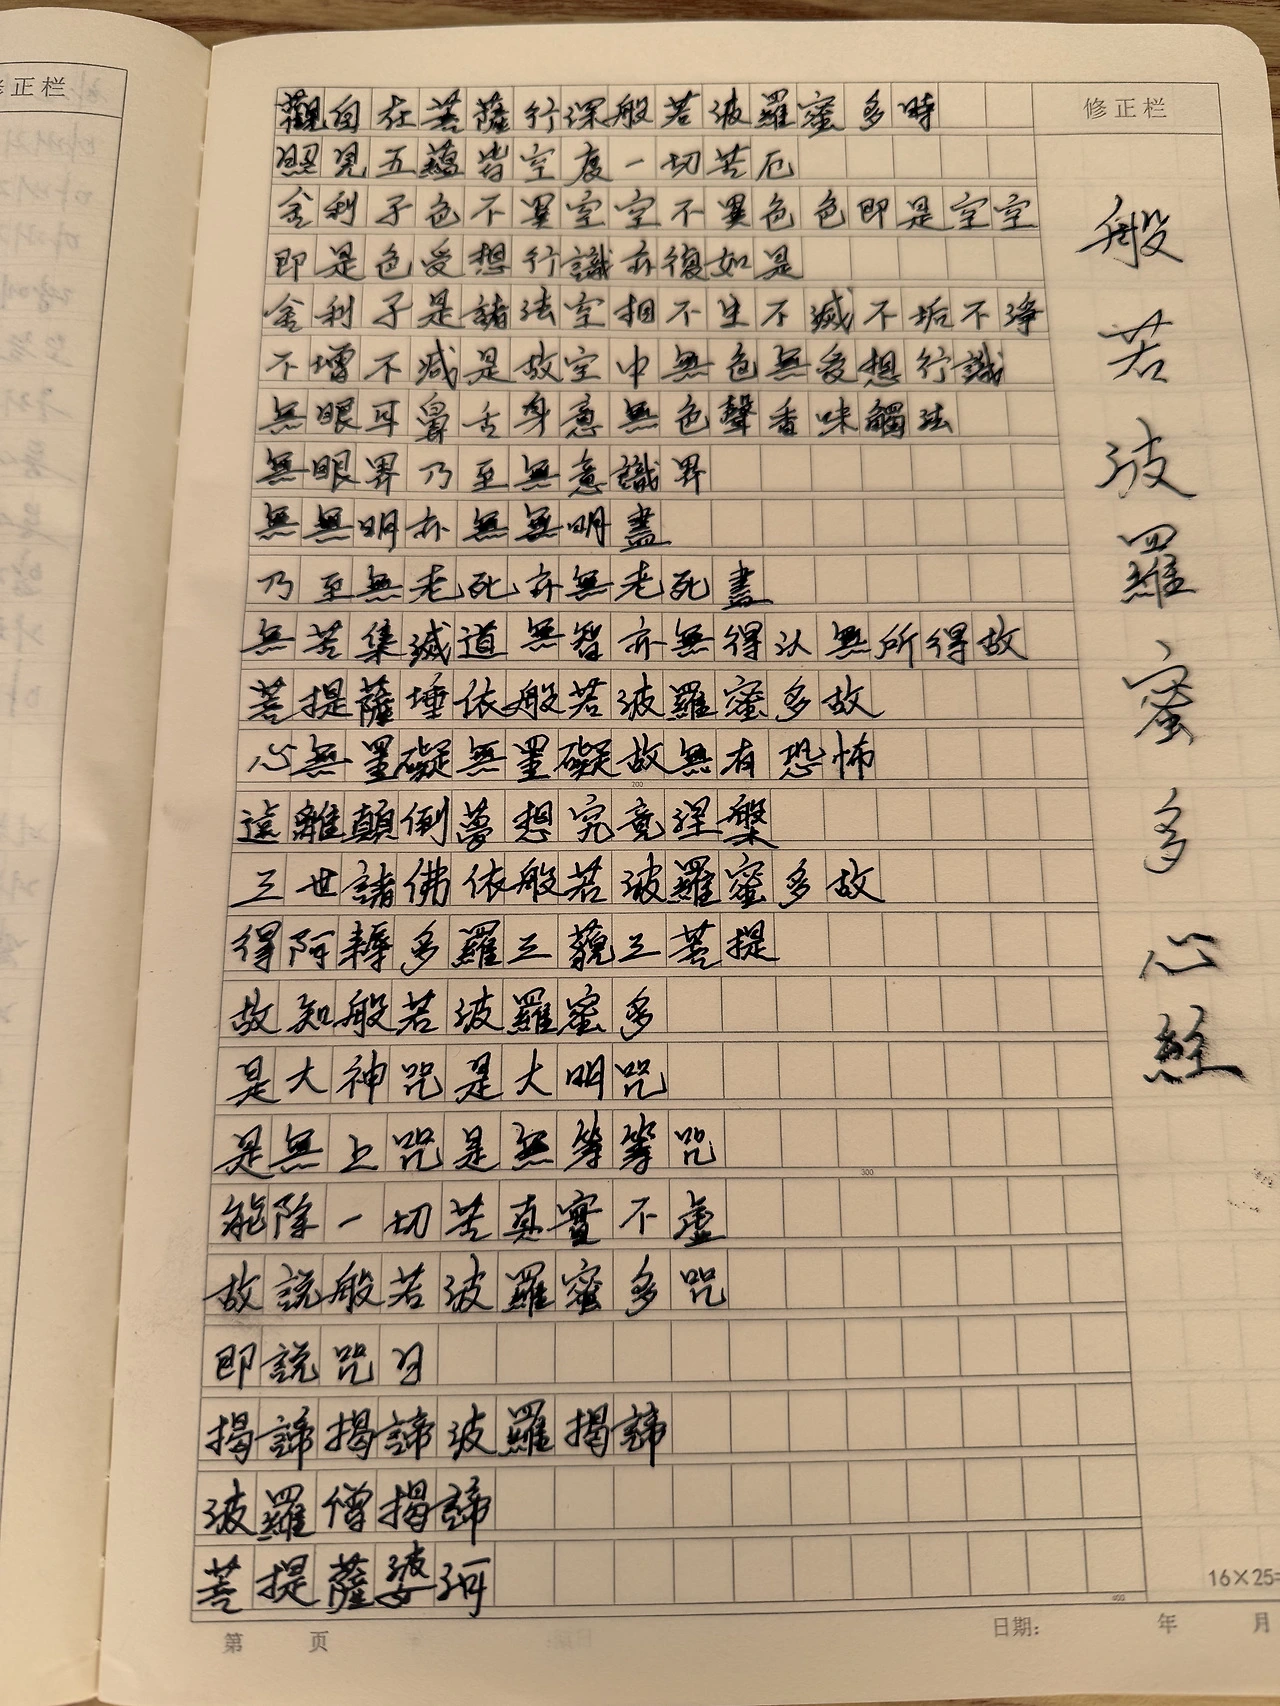 修正栏
觀自在菩薩行深般若波羅蜜多時
照見五蘊皆空度一切苦厄
舍利子色不異空空不異色色即是空空
即是色受想行識亦復如是
舍利子是諸法空相不生不滅不垢不淨
不增不減是故空中無色無受想行識
無眼耳鼻舌身意無色聲香味觸法
無眼界乃至無意識界
無無明亦無無明盡
乃至無老死亦無老死盡
無苦集滅道無智亦無得以無所得故
菩提薩埵依般若波羅蜜多故
心無罣礙無罣礙故無有恐怖
200
遠離顛倒夢想究竟涅槃
三世諸佛依般若波羅蜜多故
得阿耨多羅三藐三菩提
故知般若波羅蜜多
是大神咒是大明咒
是無上咒是無等等咒
300
能除一切苦真實不虛
故說般若波羅蜜多咒
即說咒曰
揭諦揭諦波羅揭諦
波羅僧揭諦
菩提薩婆訶
400
第 页
日期: 年 月
修正栏
般若波羅蜜多心經
16×25=